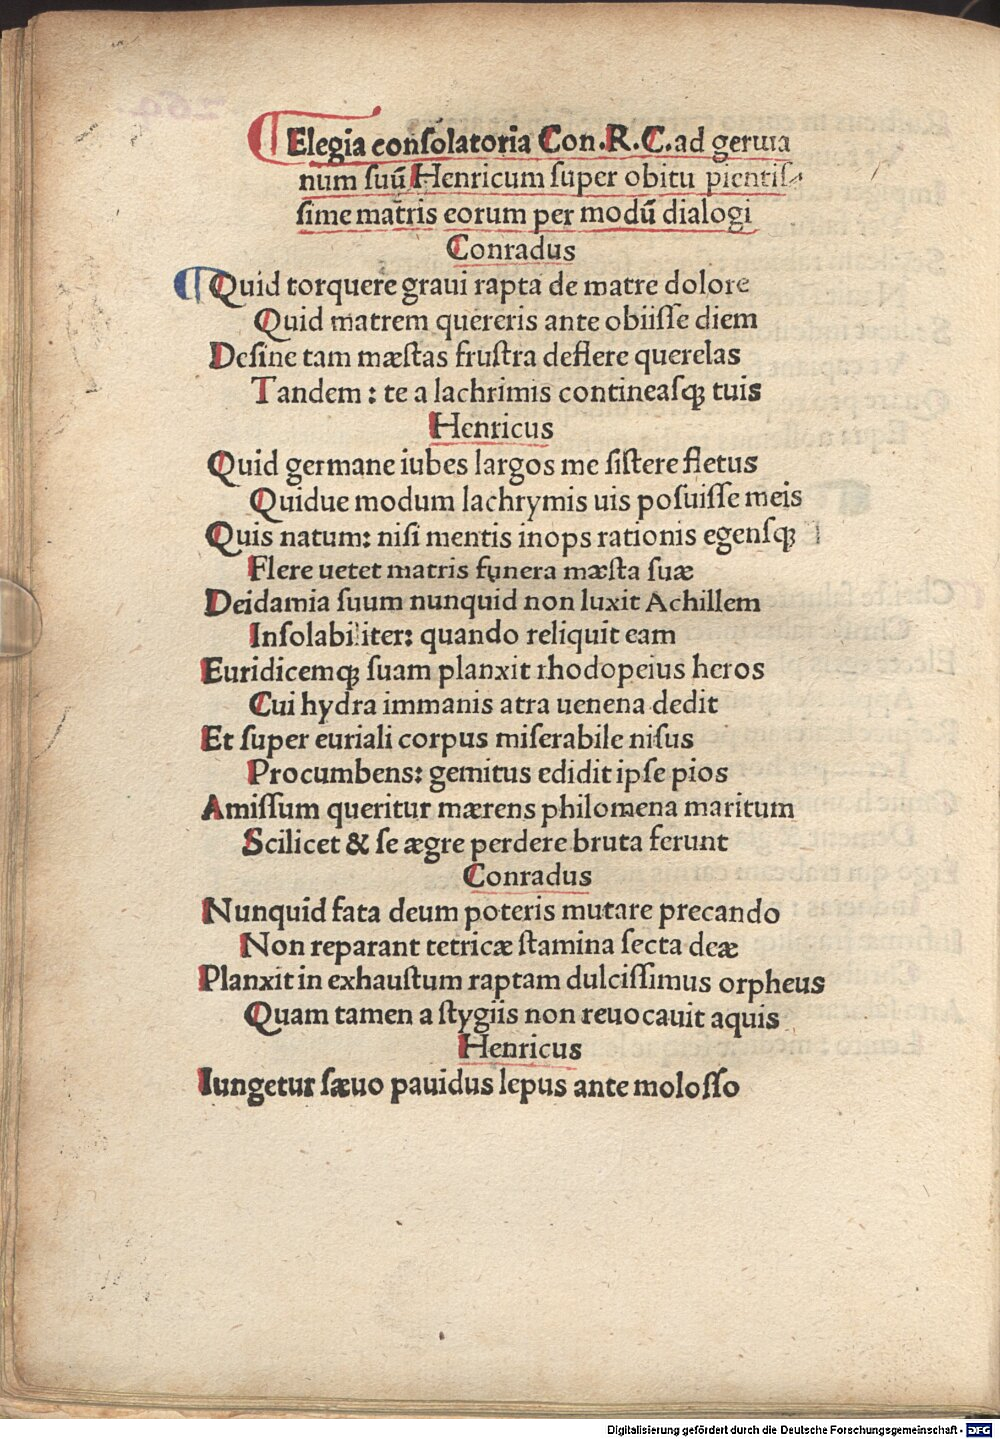 ¶Elegia conſolatoria Con.R.C.ad germa
num ſuū Henricum ſuper obitu pientiſ⸗
ſime matris eorum per modū dialogi
Conradus
¶Quid torquere graui rapta de matre dolore
Quid matrem quereris ante obiiſſe diem
Deſine tam mæſtas fruſtra deflere querelas
Tandem : te a lachrimis contineaſqꝫ tuis
Henricus
Quid germane iubes largos me ſiſtere fletus
Quidue modum lachrymis uis poſuiſſe meis
Quis natum: niſi mentis inops rationis egenſqꝫ
Flere uetet matris funera mæſta ſuæ
Deidamia ſuum nunquid non luxit Achillem
Inſolabiliter: quando reliquit eam
Euridicemqꝫ ſuam planxit rhodopeius heros
Cui hydra immanis atra uenena dedit
Et ſuper euriali corpus miſerabile niſus
Procumbens: gemitus edidit ipſe pios
Amiſſum queritur mærens philomena maritum
Scilicet & ſe ægre perdere bruta ferunt
Conradus
Nunquid fata deum poteris mutare precando
Non reparant tetricæ ſtamina ſecta deæ
Planxit in exhauſtum raptam dulciſſimus orpheus
Quam tamen a ſtygiis non reuocauit aquis
Henricus
Iungetur ſæuo pauidus lepus ante moloſſo
Digitalisierung gefördert durch die Deutsche Forschungsgemeinschaft - DFG